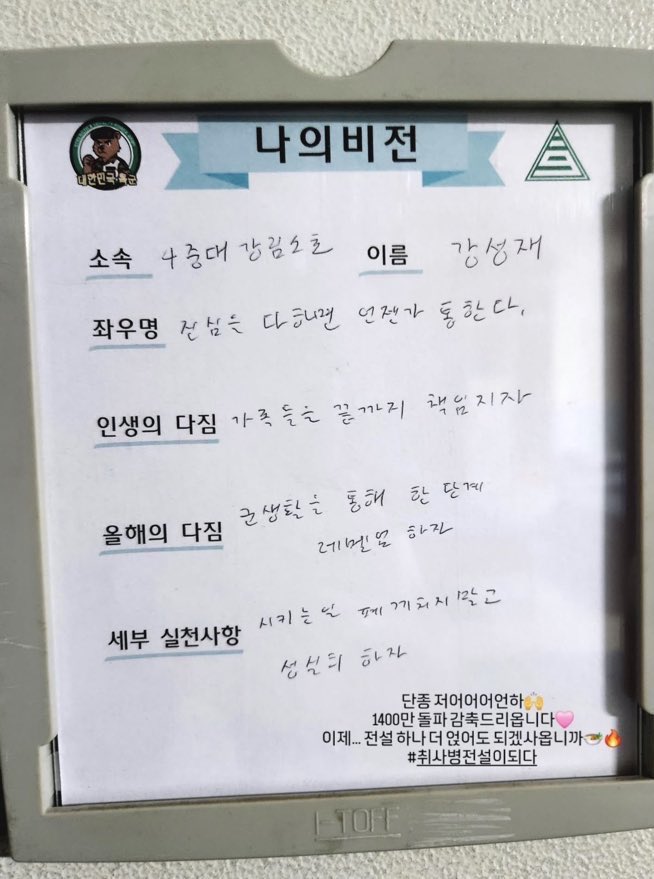 나의비전
대한민국 육군
소속 4중대 강림소초 이름 강성재
좌우명 진심을 다하면 언젠가 통한다.
인생의 다짐 가족들을 끝까지 책임지자
올해의 다짐 군생활을 통해 한 단계
레벨업 하자
세부 실천사항 시키는일 폐 끼치지 말고
성실히 하자
단종 저어어어언하🙌
1400만 돌파 감축드리옵니다🩷
이제... 전설 하나 더 얹어도 되겠사옵니까🍲🔥
#취사병전설이되다
I-TOFF